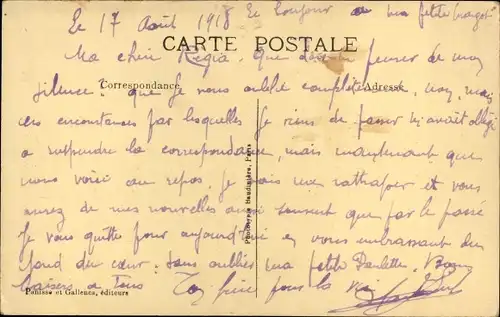 Le 17 Août 1918 le bonjour a ma petite
CARTE POSTALE
Ma chère Regia, que dois-tu penser de mon
Correspondance Adresse
silence; que je vous oublié complètement, non, mais
les circonstances par lesquelles je viens de passer m'avait obligé
a suspendre la correspondance, mais maintenant que
nous voici au repos, je vais me rattraper et vous
aurez de mes nouvelles aussi souvent que par le passé
Je vous quitte pour aujourd'hui en vous embrassant du
fond du cœur; sans oublier ma petite Paulette, Bons
baisers a Tous Ton frère pour la vie
Penisse et Gallenca, éditeurs
Phototypie Baudinière, Paris